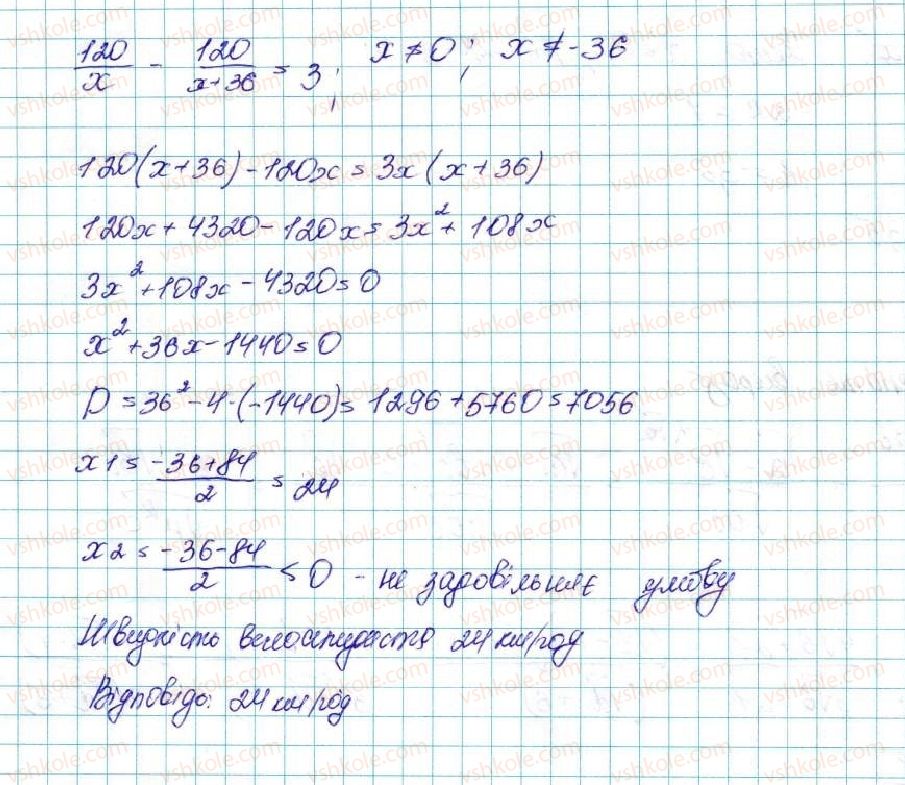 120/x - 120/(x+36) = 3; x ≠ 0; x ≠ -36
120(x+36) - 120x = 3x(x+36)
120x + 4320 - 120x = 3x² + 108x
3x² + 108x - 4320 = 0
x² + 36x - 1440 = 0
D = 36² - 4·(-1440) = 1296 + 5760 = 7056
x1 = (-36+84)/2 = 24
x2 = (-36-84)/2 < 0 - не задовільняє умову
Швидкість велосипедиста 24 км/год
Відповідь: 24 км/год